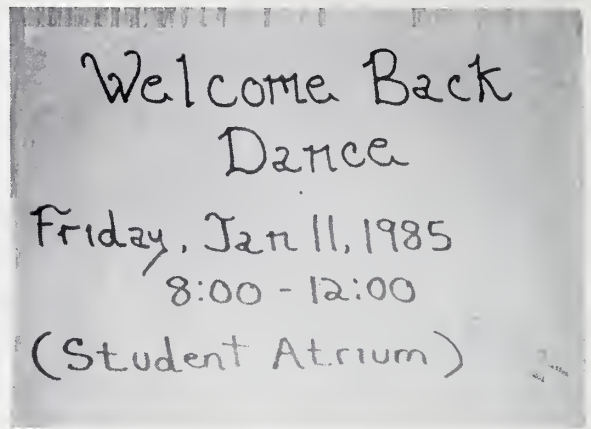 Welcome Back
Dance
Friday, Jan 11, 1985
8:00 - 12:00
(Student Atrium)